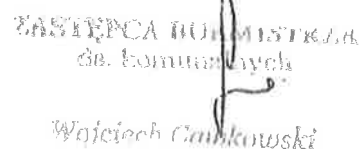 ZASTĘPCA BURMISTRZA
ds. komunalnych
Wojciech